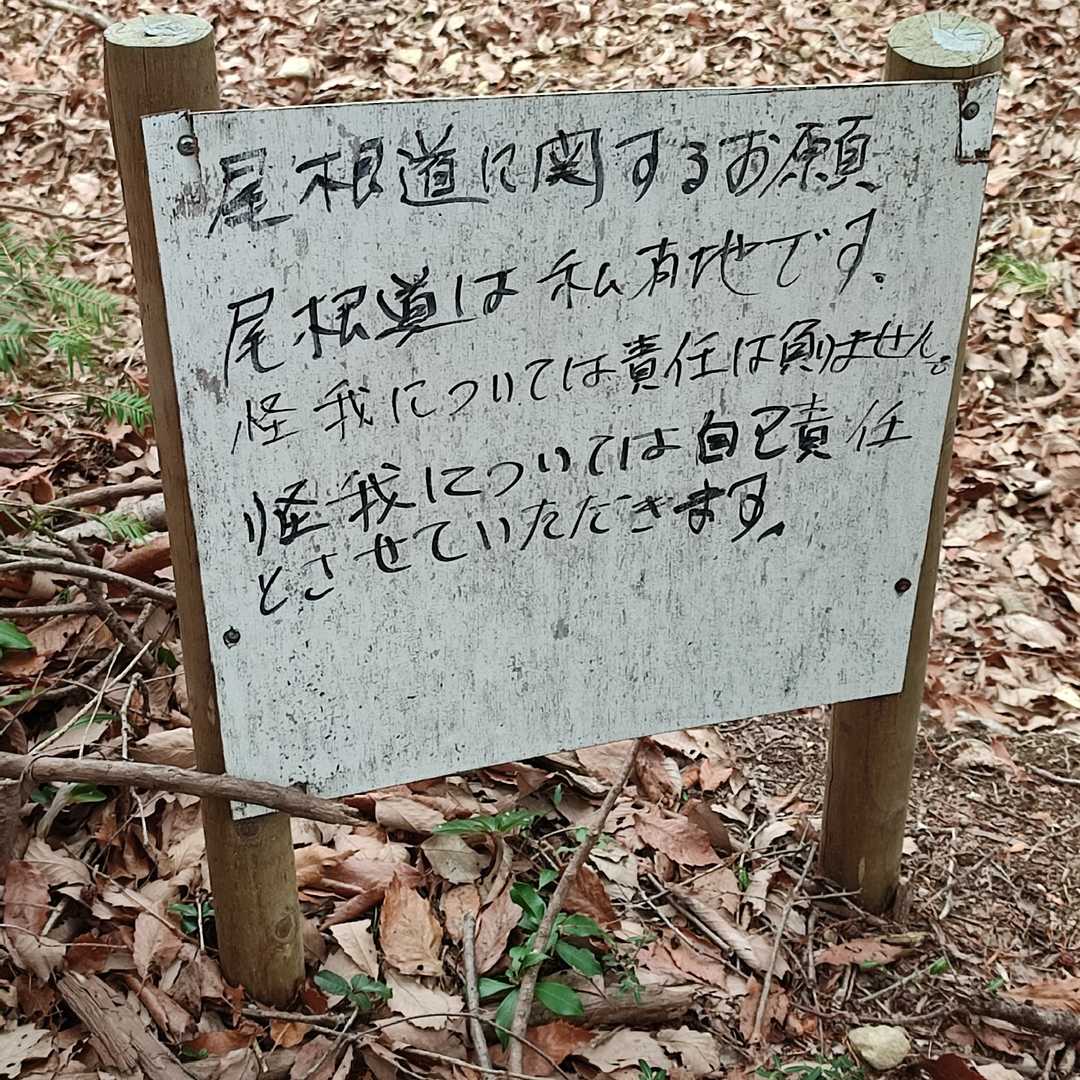 尾根道に関するお願
尾根道は私有地です。
怪我については責任は負りません。
怪我については自己責任
とさせていただきます。